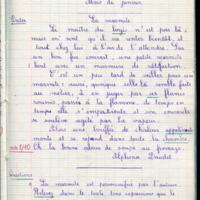 Mois de janvier
Dictée
La marmite
Le maître du logis n'est pas là ;
mais on sent qu'il va venir bientôt et
tout chez lui a l'air de l'attendre. Sur
un bon feu couvert, une petite marmite
bout avec un murmure de satisfaction.
C'est un peu tard de veiller pour un
marmite ; aussi, quoique celle-là semble faite
au métier, à en juger par ses flancs
roussis, passés à la flamme, de temps en
temps elle s'impatiente et son couvercle
se soulève agité par la vapeur.
Alors une bouffée de chaleur appétissante
monte et se répand dans toute la chambre.
Oh ! la bonne odeur de soupe au fromage
Alphonse Daudet
Questions
La marmite est personnifiée par l'auteur.
Relevez dans le texte les expressions que le